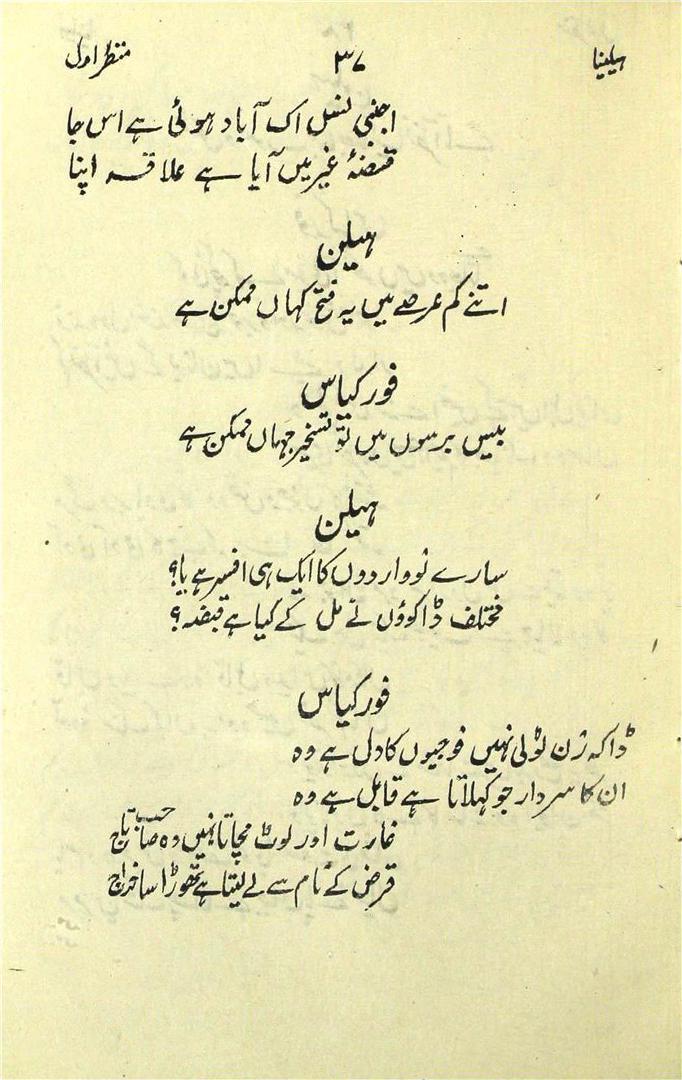 ہیلینا ۳۷ منظر اول
اجنبی نسل اک آباد ہوئی ہے اس جا
قبضۂ غیر میں آیا ہے علاقہ اپنا
ہیلن
اتنے کم عرصے میں یہ فتح کہاں ممکن ہے
فورکیاس
بیس برسوں میں تو تسخیرِ جہاں ممکن ہے
ہیلن
سارے نوواردوں کا ایک ہی افسر ہے یا؟
مختلف ڈاکوؤں نے مل کے کیا ہے قبضہ؟
فورکیاس
ڈاکہ زن ٹولی نہیں فوجیوں کا دل ہے وہ
ان کا سردار جو کہلاتا ہے قابل ہے وہ
غارت اور لوٹ مچاتا نہیں وہ صاحب تاج
قرض کے نام سے لے لیتا ہے تھوڑا سا خراج